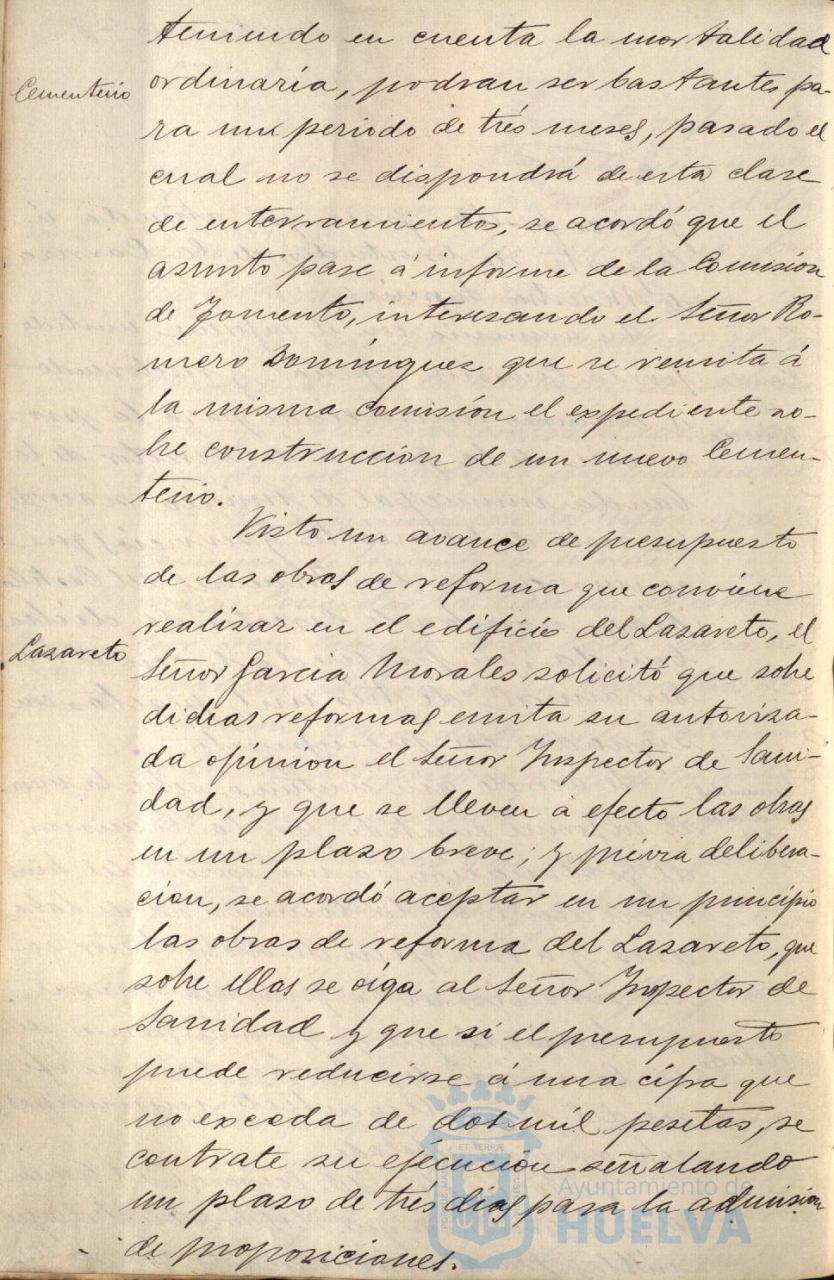 teniendo en cuenta la mortalidad
Cementerio
ordinaria, podran ser bastantes pa-
ra un periodo de trés meses, pasado el
cual no se dispondrá de esta clase
de enterramientos, se acordó que el
asunto pase á informe de la Comisión
de Fomento, interesando el Señor Ro-
mero Domínguez que se remita á
la misma comisión el expediente so-
bre construcción de un nuevo Cemen-
terio.
Visto un avance de presupuesto
de las obras de reforma que conviene
realizar en el edificio del Lazareto, el
Lazareto
Señor Garcia Morales solicitó que sobre
dichas reformas emita su autoriza-
da opinion el Señor Inspector de Sani-
dad, y que se lleven á efecto las obras
en un plazo breve; y prévia delibera-
ción, se acordó aceptar en un principio
las obras de reforma del Lazareto, que
sobre ellas se oiga al Señor Inspector de
Sanidad y que si el presupuesto
puede reducirse á una cifra que
no exceda de dos mil pesetas, se
contrate su ejecución señalando
un plazo de trés dias para la admision
de proposiciones.
Ayuntamiento de
HUELVA